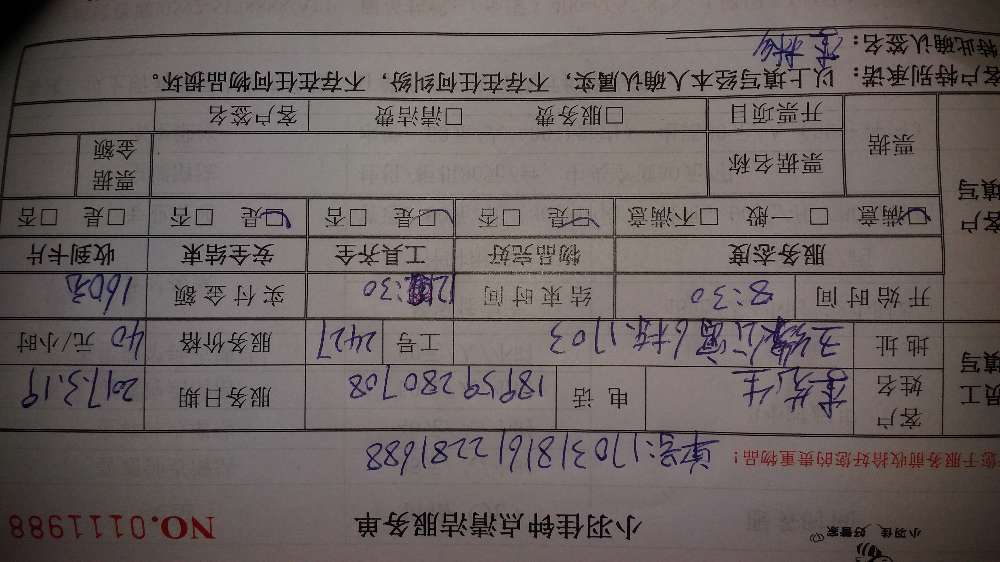 小羽佳 好管家
小羽佳钟点清洁服务单 NO.0111988
您于服务前收拾好您的贵重物品!
单号:1703181612281688
员工填写 客户姓名 李先生 电话 18959280708 服务日期 2017.3.19
地址 公寓6栋1703 工号 2427 服务价格 40元/小时
开始时间 8:30 结束时间 12:30 实付金额 160元
客户填写 服务态度 物品完好 工具齐全 安全结束 收到卡片
☑满意 □一般 □不满意 ☑是 □否 ☑是 □否 ☑是 □否 □是 □否
票据 票据名称 票据金额
开票项目 □服务费 □清洁费 客户签名
客户特别承诺:以上填写经本人确认属实,不存在任何纠纷,不存在任何物品损坏。
特此确认签名: